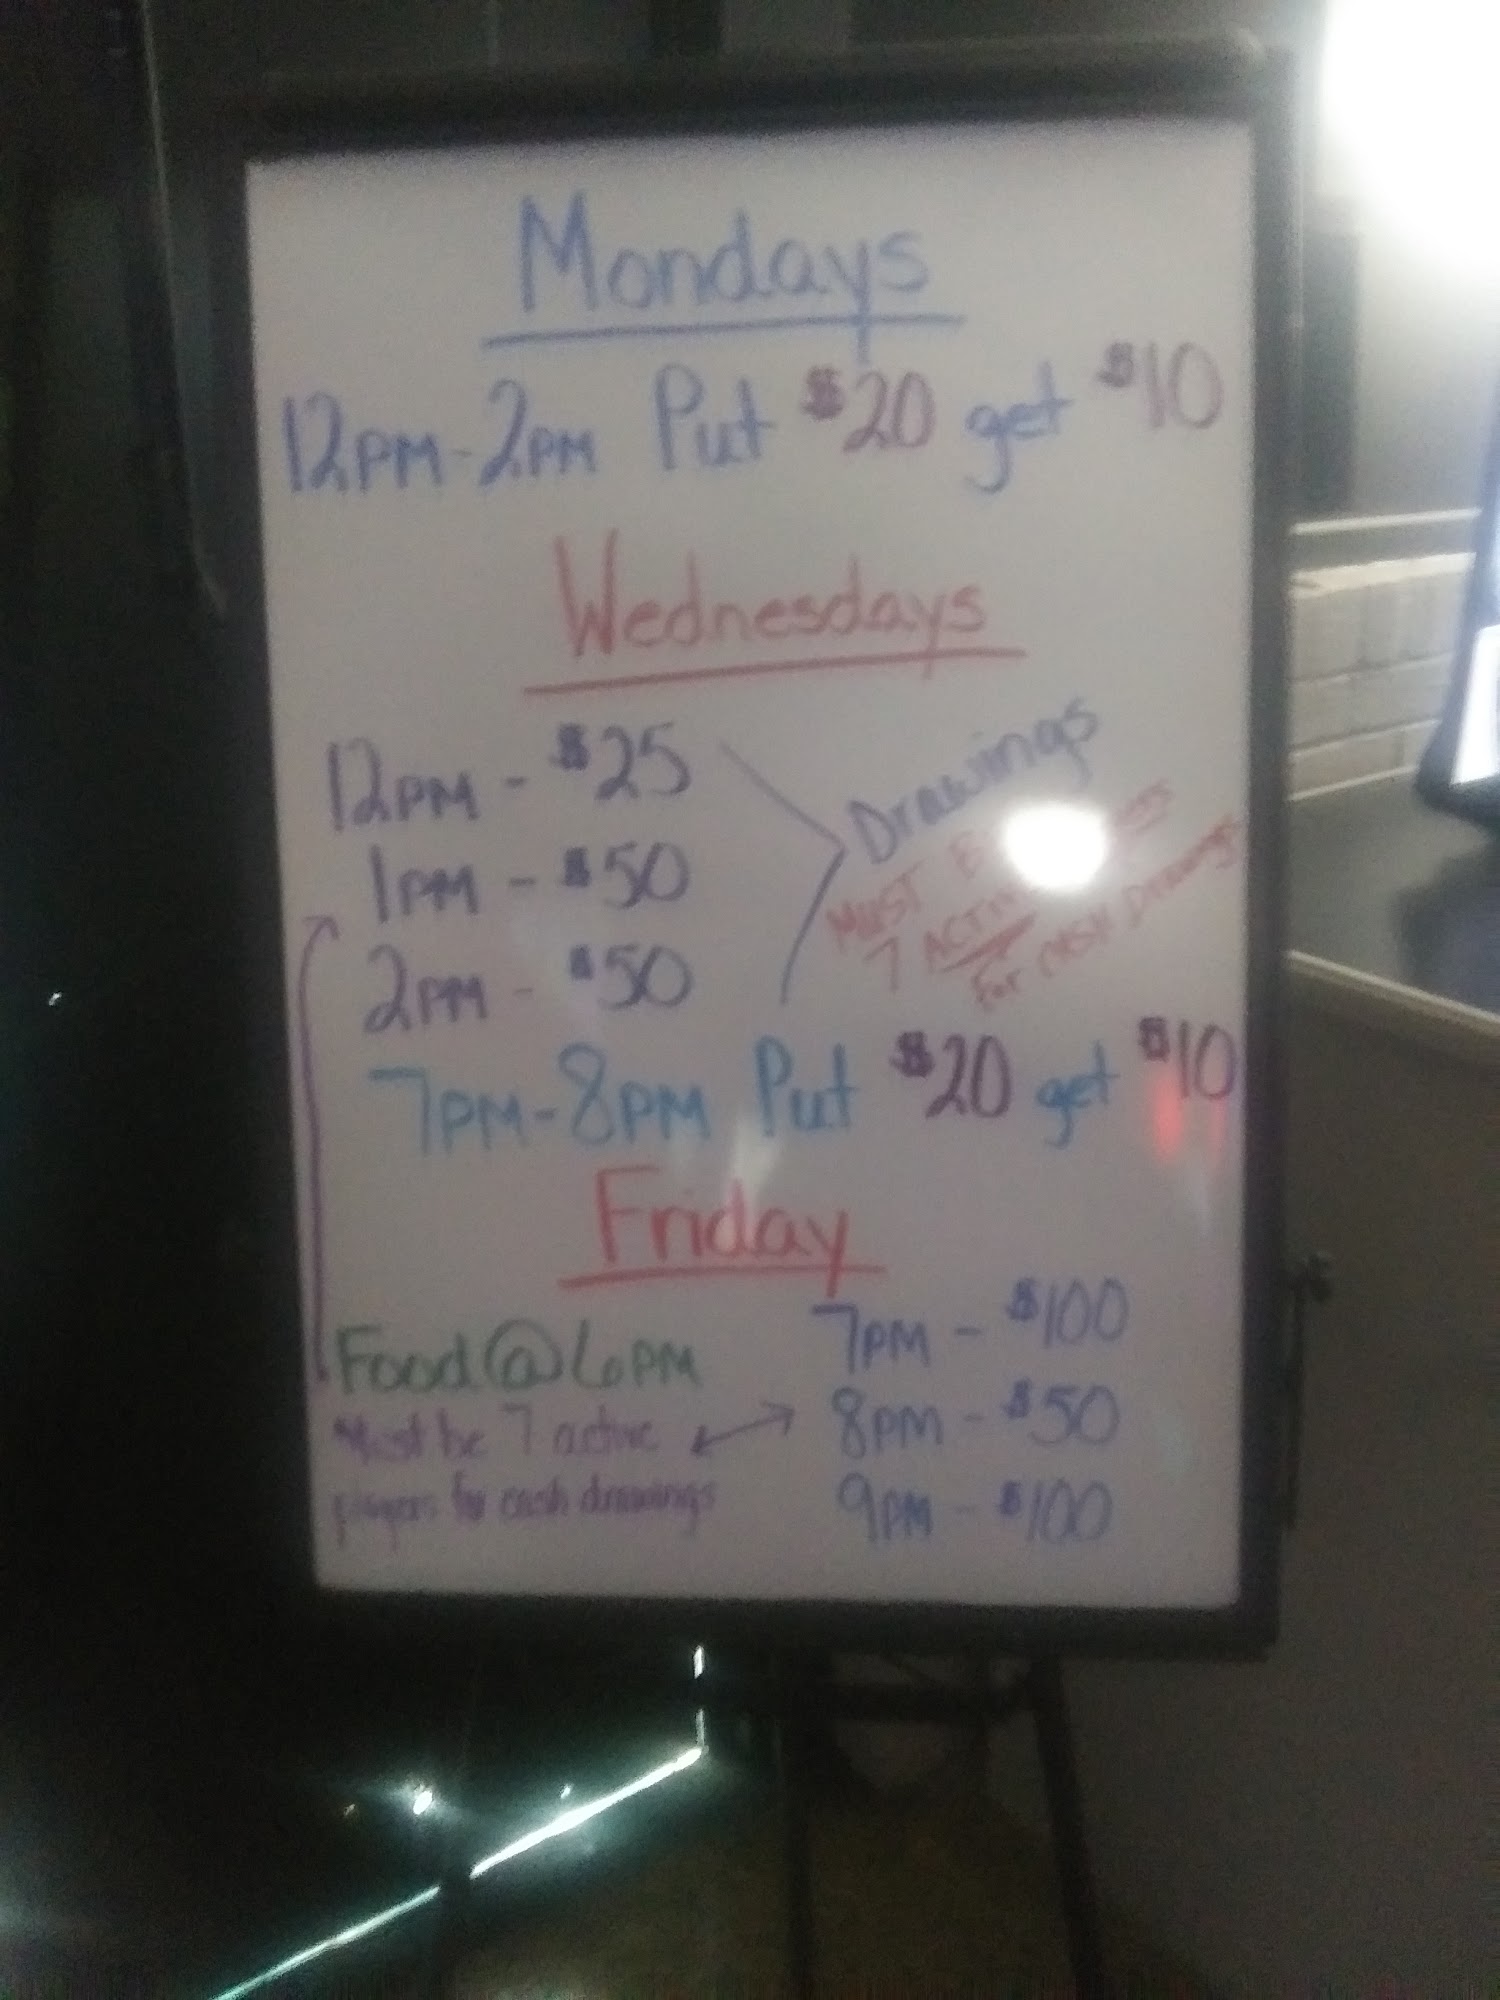 Mondays
12PM-2PM Put $20 get $10
Wednesdays
12PM - $25
1PM - $50
2PM - $50
Drawings
MUST
7
For CASH Drawings
7PM-8PM Put $20 get $10
Friday
Food@6PM
*Must be 7 active
players for cash drawings
7PM - $100
8PM - $50
9PM - $100